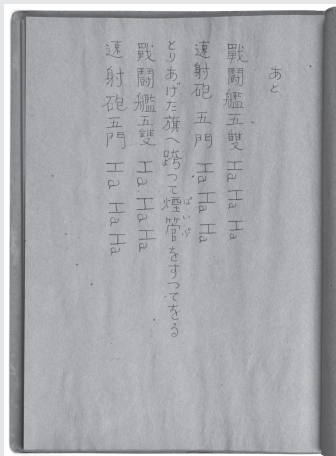 あと
戰鬪艦五雙 Ha Ha Ha
速射砲五門 Ha Ha Ha
とりあげた旗へ跨つて煙管をすつてをる
ぱいぷ
戰鬪艦五雙 Ha Ha Ha
速射砲五門 Ha Ha Ha